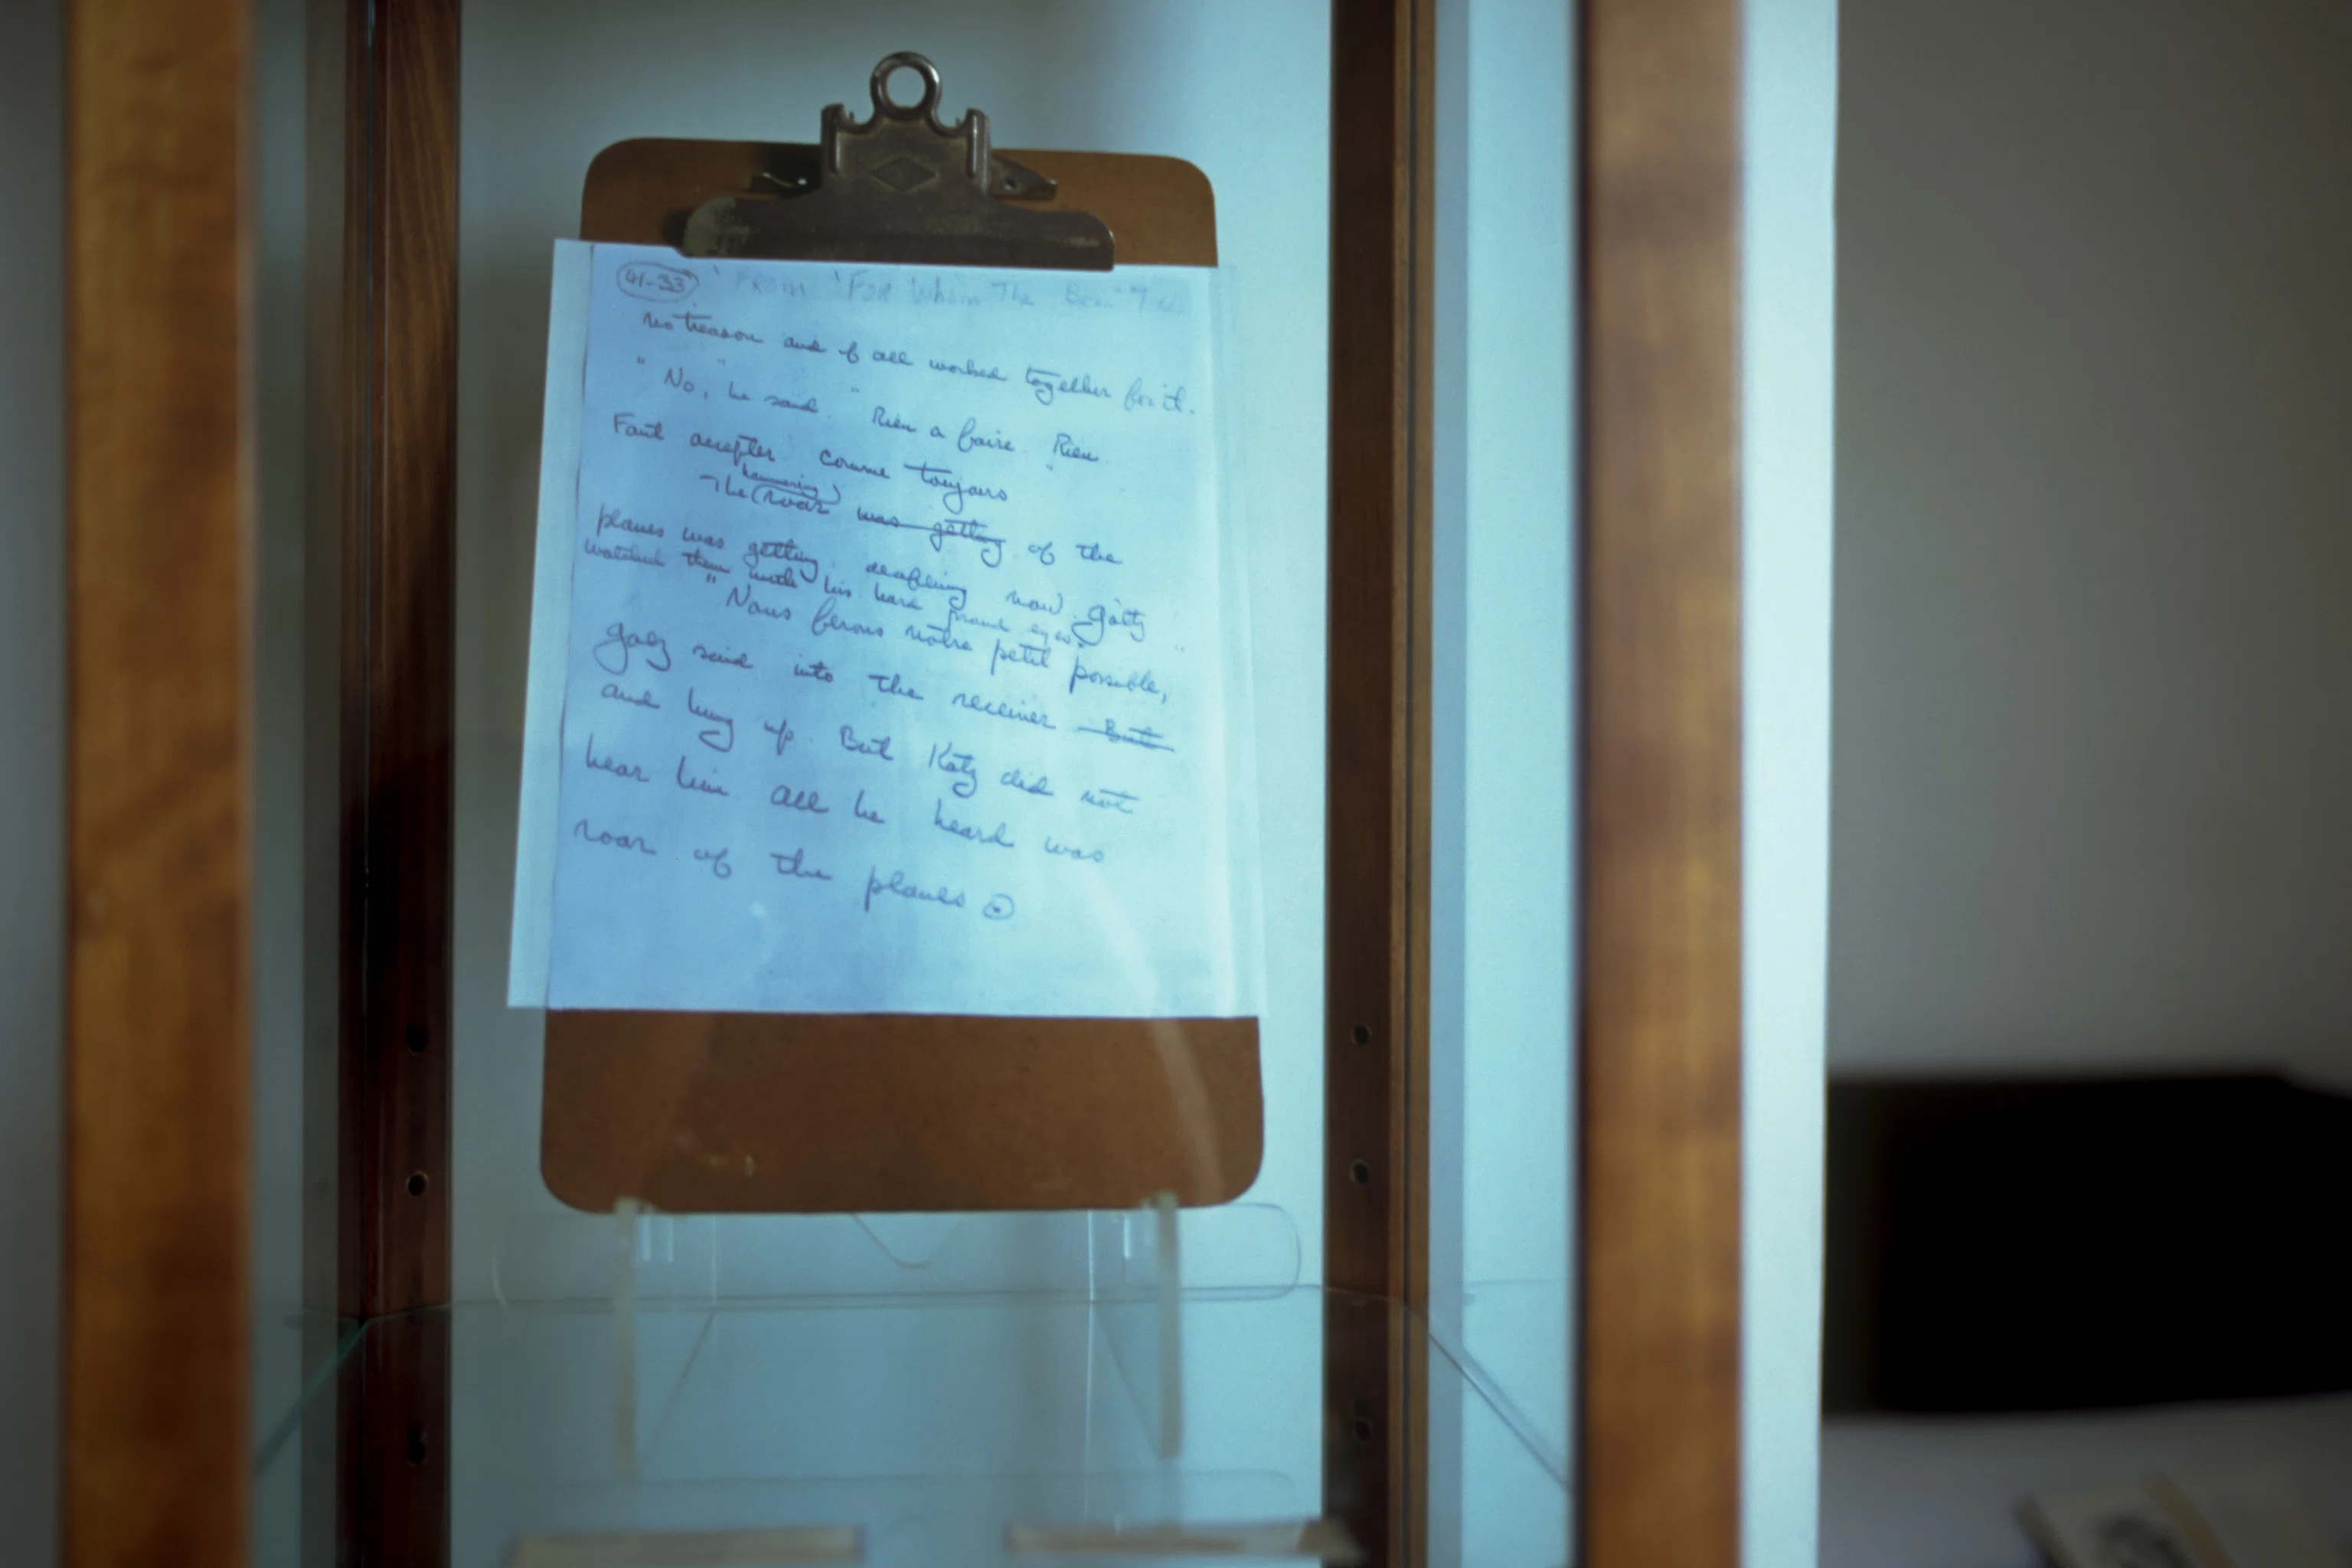 41-33 'FROM 'FOR Whom The Bell
no treason and if all worked together for it.
" No," he said. " Rien a faire. Rien.
Faut accepter comme toujours "
hammering
The (roar) was getting of the
planes was getting deafening now. Goltz
watched them with his hard proud eyes.
" Nous ferons notre petit possible, "
Golz said into the receiver But
and hung up. But Kotz did not
hear him all he heard was
roar of the planes